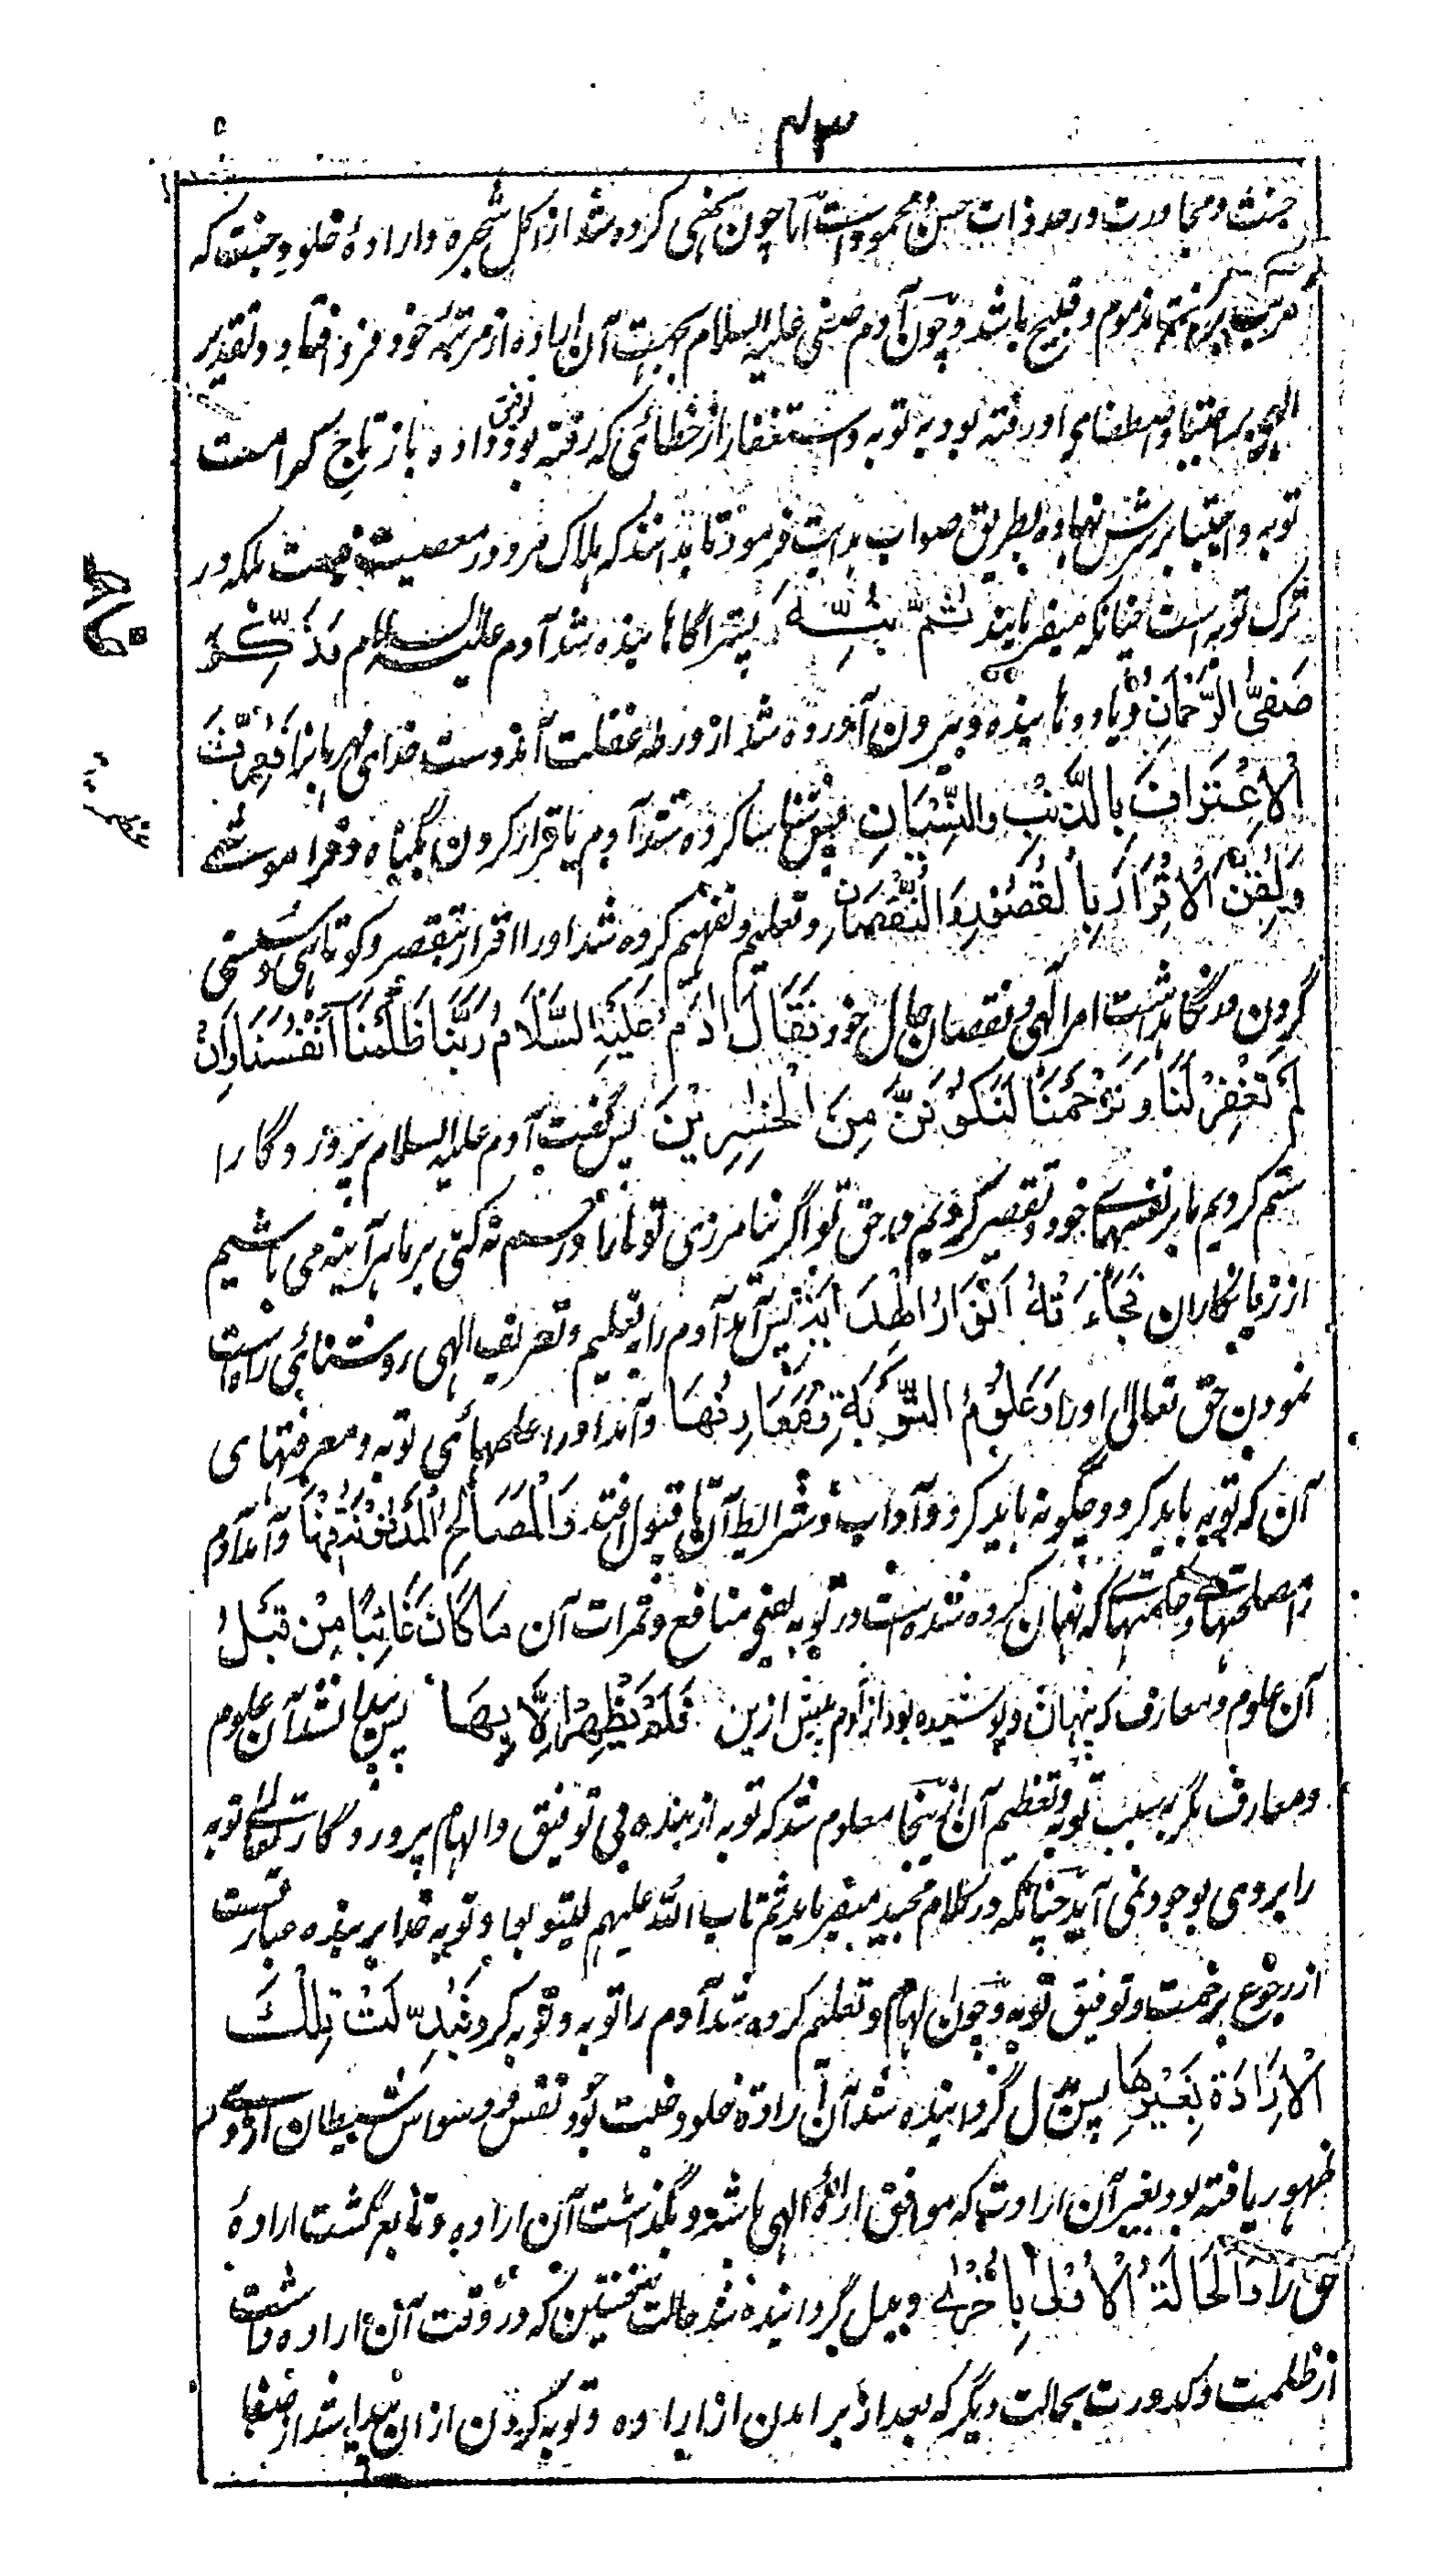 ۴۳
جنت و مجاورت در حد ذات حسن و محمود است اما چون نهی کرده شد از اکل شجره و ارادهٔ خلود جنت که
مرتب بر مذموم و قبیح باشد و چون آدم صفی علیه السلام بجهت آن اراده از مرتبهٔ خود فرو افتاد و تقدیر
الهی بر اجتبا و اصطفای او رفته بود به توبه و استغفار از خطائی که رفته بود توفیق داده باز تاج کرامت
توبه و اجتبا بر سرش نهاده بطریق صواب هدایت فرمود تا بدانند که هلاک مرد در معصیت نیست بلکه در
ترک توبه است چنانکه میفرمایند ثُمَّ نُبِّهَ پستر آگاهانیده شد آدم علیه السلام مُذَكِّرَ
صَفِیُّ الرَّحْمٰنِ و یاد دهانیده و بیرون آورده شد از ورطه غفلت آن دوست خدای مهربان فَعُرِّفَ
الْاِعْتِرَافَ بِالذَّنْبِ وَالنِّسْيَانِ پس شناسا کرده شد آدم باقرار کردن بگناه و فراموشی
وَلُقِّنَ الْاِقْرَارَ بِالْقُصُوْرِ وَالنُّقْصَانِ و تعلیم و تفهیم کرده شد او را اقرار بتقصیر و کوتاهی و سستی
کردن در نگاهداشت امر الهی و نقصان حال خود فَقَالَ اٰدَمُ عَلَيْهِ السَّلَامُ رَبَّنَا ظَلَمْنَا اَنْفُسَنَا وَاِنْ
لَمْ تَغْفِرْ لَنَا وَتَرْحَمْنَا لَنَكُوْنَنَّ مِنَ الْخٰسِرِيْنَ پس گفت آدم علیه السلام پروردگارا
ستم کردیم ما بر نفسهای خود و تقصیر کردیم در حق تو اگر نیامرزی تو ما را و رحم نه کنی بر ما هر آینه می باشیم
از زیانکاران فَجَاءَتْهُ اَنْوَارُ الْهِدَايَةِ پس آمد آدم را به تعلیم و تعریف الهی روشنائی راه راست
نمودن حق تعالی او را وَعُلُوْمُ التَّوْبَةِ وَمَعَارِفُهَا و آمد او را علمهائی توبه و معرفتهای
آن که توبه باید کرد و چگونه باید کرد و آداب و شرایط آن تا قبول افتد وَالْمَصَالِحُ الْمَدْفُوْنَةُ فِيْهَا و آمد آدم
را مصلحتهای و حکمتهای که نهان کرده شده است در توبه یعنی منافع و ثمرات آن مَا كَانَ غَائِبًا مِنْ قَبْلُ
آن علوم و معارف که پنهان و پوشیده بود از آدم پیش ازین فَلَمْ يَظْهَرْ اِلَّا بِهَا پس پیدا نشد آن علوم
و معارف مگر به سبب توبه و تعظیم آن از ینجا معلوم شد که توبه از بنده بی توفیق و الهام پروردگار تعالی توبه
را بر وی بوجود نمی آید چنانکه در کلام مجید میفرماید ثم تاب الله علیهم لیتوبوا و توبه خدا بر بنده عبارتست
از رجوع برحمت و توفیق توبه و چون الهام و تعلیم کرده شد آدم را توبه و توبه کرد فَبُدِّلَتْ تِلْكَ
الْاِرَادَةُ بِغَيْرِهَا پس بدل گردانیده شد آن ارادهٔ خلود جنت که بوجود نفس و وسواس شیطان از وی
ظهور یافته بود بغیر آن ارادت که موافق ارادهٔ الهی باشد و بگذاشت آن اراده و تابع گشت ارادهٔ
حق را وَالْحَالَةُ الْاُوْلٰى بِاُخْرٰى و بدل گردانیده شد حالت نخستین که در وقت آن اراده داشت
از ظلمت و کدورت بحالت دیگر که بعد از برآمدن از اراده و توبه کردن از ان پیدا شد از صفا